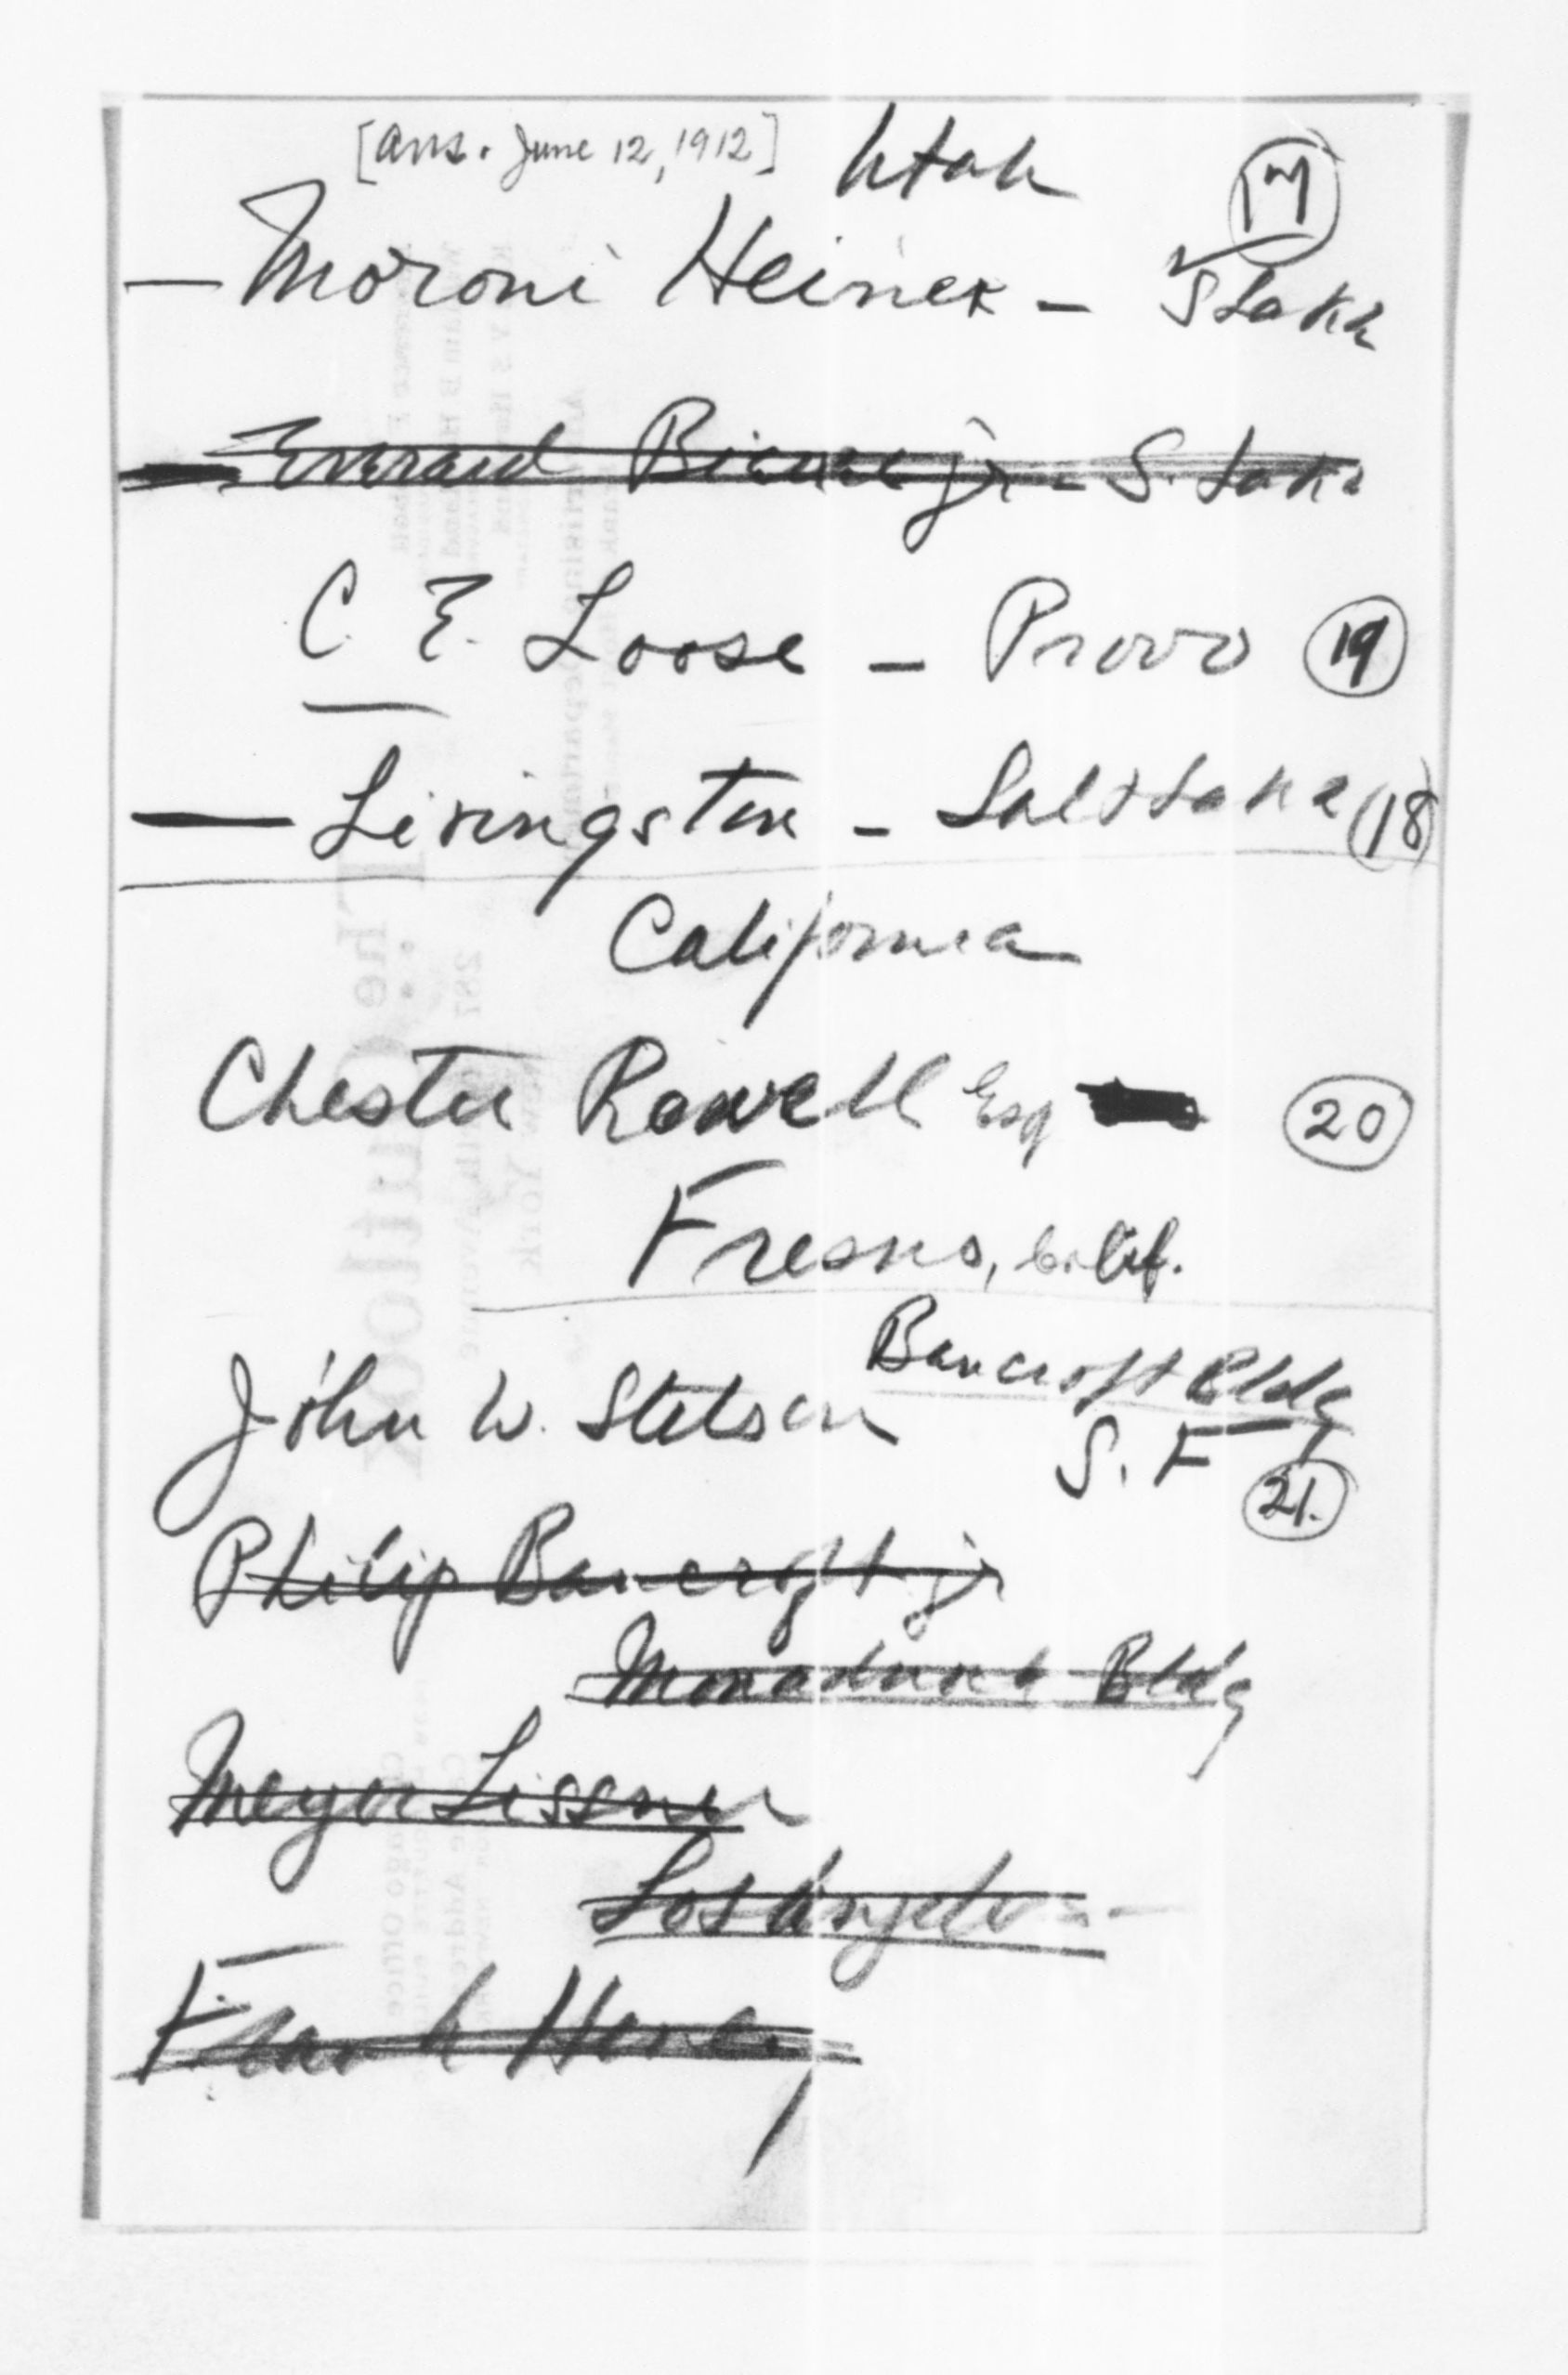 [Ans. June 12, 1912] Utah 17
— Moroni Heiner — S Lake
— Everard Bierer jr — S. Lake
C. E. Loose — Provo 19
— Livingston — Salt Lake 18
California
Chester Rowell Esq 20
Fresno, Calif.
John W. Stetson Bancroft Bldg
S. F 21.
Philip Bancroft jr
Monadnock Bldg
Meyer Lissner
Los Angeles —
Frank Heney